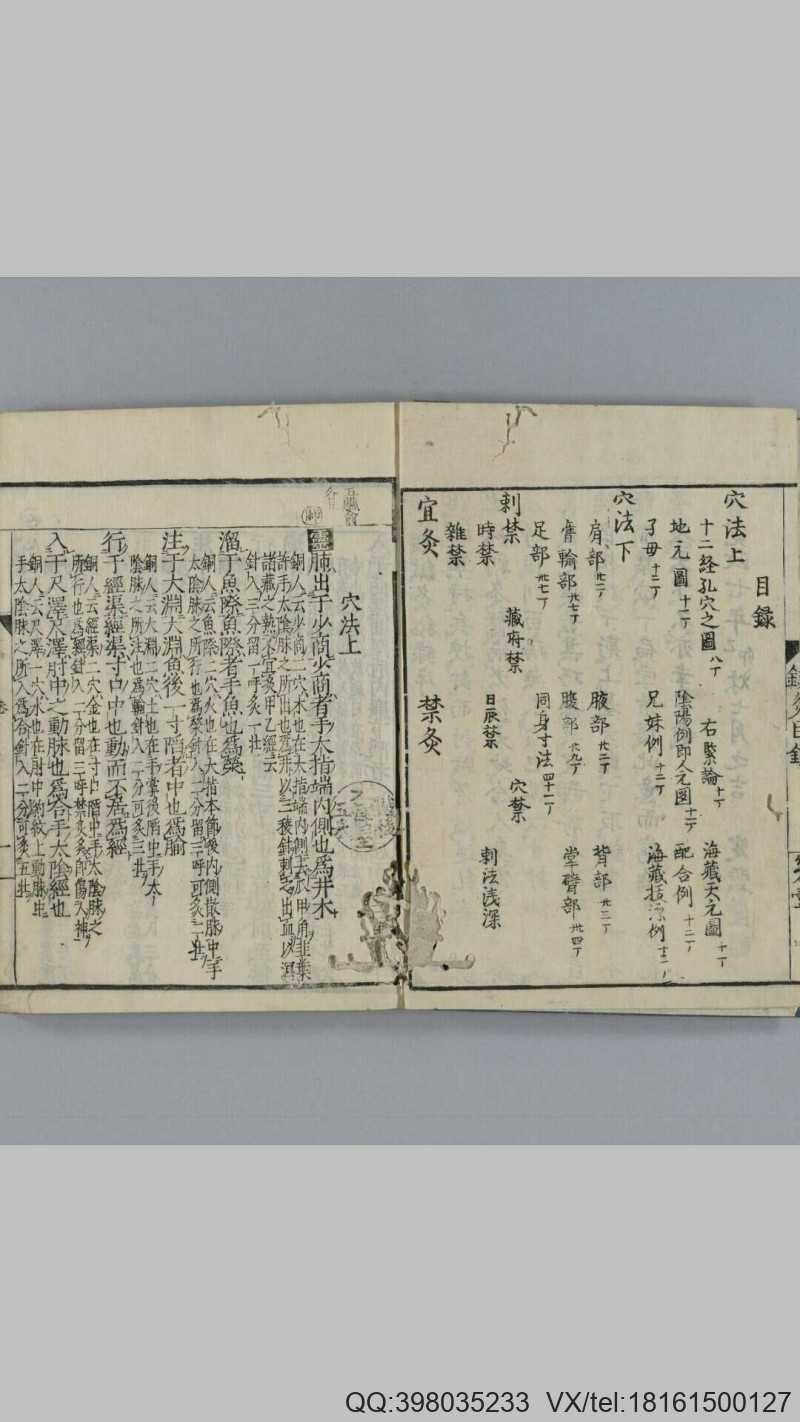 目録
穴法上
十二経孔穴之圖 八丁 右緊論 十丁 海藏天元圖 十一丁
地元圖 十一丁 陰陽例即人元図 十二丁 配合例 十二丁
子毋 十二丁 兄妹例 十二丁 海藏拔源例
穴法下
肩部 腋部 背部
膏輸部 腹部 掌臂部
足部 同身寸法 四十一丁
刺禁 藏府禁 穴禁
時禁 日辰禁 刺法浅深
雜禁
宜灸 禁灸
穴法上
肺出于少商少商者手大指端内側也爲井木
銅人云少商二穴木也在大指端内側去爪甲角韭葉
許手太陰脉之所出也爲井以三稜針刺之出血以洩
諸藏之熱不宜灸甲乙經云
針入三分留一呼灸一壮
溜于魚際魚際者手魚也爲滎
銅人云魚際二穴火也在大指本節後内側散脉中手
太陰脉之所行也爲滎針入二分留三呼可灸三壮
注于大淵大淵魚後一寸陷者中也爲腧
銅人云大淵二穴土也在手掌後陷中手太
陰脉之所注也爲輸針入二分可灸三壮
行于經渠經渠寸口中也動而不居爲經
銅人云經渠二穴金也在寸口陷中手太陰脉之
所行也爲經針入二分留三呼禁灸灸即傷人神
入于尺澤尺澤肘中之動脉也爲合手太陰經也
銅人云尺澤二穴水也在肘中約紋上動脉中
手太陰脉之所入爲合針入三分可灸五壮
QQ:398035233 VX/tel:18161500127